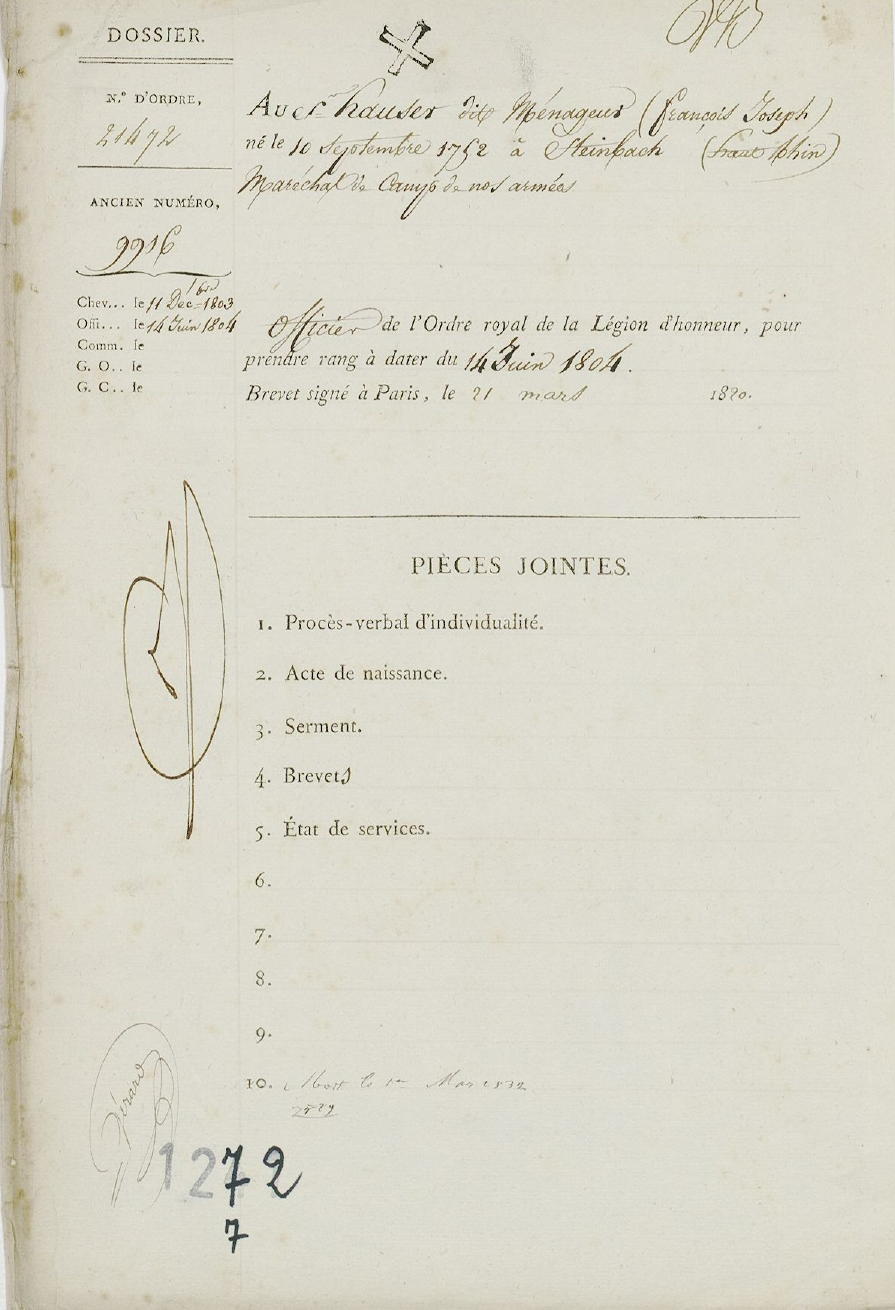 DOSSIER.
N.° D'ORDRE,
21472
ANCIEN NUMÉRO,
9916
Chev... le 11 Déc.bre 1803
Offi... le 14 Juin 1804
Comm. le
G. O.. le
G. C.. le
dit Ménageur (françois Joseph)
né le 10 Septembre 1752 à Steinbach (haut Rhin)
Maréchal de Camp de nos armées
Officier de l'Ordre royal de la Légion d'honneur, pour
prendre rang à dater du 14 Juin 1804.
Brevet signé à Paris, le 21 mars 1820.
PIÈCES JOINTES.
1. Procès-verbal d'individualité.
2. Acte de naissance.
3. Serment.
4. Brevets
5. État de services.
6.
7.
8.
9.
10. Mort le 1er Mar 1832
Gérard
1272
7